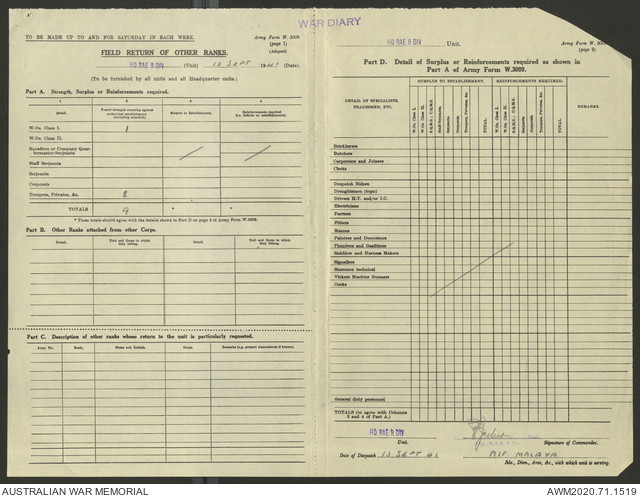 WAR DIARY
TO BE MADE UP TO AND FOR SATURDAY IN EACH WEEK.
Army Form W. 3009
(page 1)
(Adapted)
FIELD RETURN OF OTHER RANKS.
HQ RAE 8 DIV (Unit) 13 SEPT 1941 (Date)
(To be furnished by all units and all Headquarter units.)
Part A. Strength, Surplus or Reinforcements required.
1 2 3 4
Detail.
Posted strength counting against authorised establishment (including attached).
Surplus to Establishment.
Reinforcements required (i.e. deficits on establishment).
W.Os. Class I. 1
W.Os. Class II.
Squadron or Company Quartermaster-Serjeants
Staff Serjeants
Serjeants
Corporals
Troopers, Privates, &c. 8
TOTALS 9 * *
* These totals should agree with the details shown in Part D on page 2 of Army Form W.3009.
Part B. Other Ranks attached from other Corps.
Detail. Unit and Corps to which they belong. Detail. Unit and Corps to which they belong.
Part C. Description of other ranks whose return to the unit is particularly requested.
Army No. Rank. Name and Initials. Corps. Remarks (e.g., present whereabouts if known).
HQ RAE 8 DIV Unit.
Army Form W. 3009
(page 2)
Part D. Detail of Surplus or Reinforcements required as shown in
Part A of Army Form W.3009.
DETAIL OF SPECIALISTS, TRADESMEN, ETC.
SURPLUS TO ESTABLISHMENT.
REINFORCEMENTS REQUIRED.
REMARKS
W.Os. Class I.
W.Os. Class II.
S.Q.M.S.; C.Q.M.S.
Staff-Serjeants.
Serjeants.
Corporals.
Troopers, Privates, &c.
TOTAL.
W.Os. Class I.
W.Os. Class II.
S.Q.M.S.; C.Q.M.S.
Staff-Serjeants.
Serjeants.
Corporals.
Troopers, Privates, &c.
TOTAL.
Bricklayers
Butchers
Carpenters and Joiners
Clerks
Despatch Riders
Draughtsmen (topo)
Drivers H.T. and/or I.C.
Electricians
Farriers
Fitters
Masons
Painters and Decorators
Plumbers and Gasfitters
Saddlers and Harness Makers
Signallers
Storemen technical
Vickers Machine Gunners
Cooks
General duty personnel
TOTALS (to agree with Columns
3 and 4 of Part A.)
HQ RAE 8 DIV
Unit.
Signature of Commander.
Date of Despatch 13 SEPT 41
AIF MALAYA
Bde., Divn., Area, &c., with which unit is serving.
AUSTRALIAN WAR MEMORIAL
AWM2020.71.1519